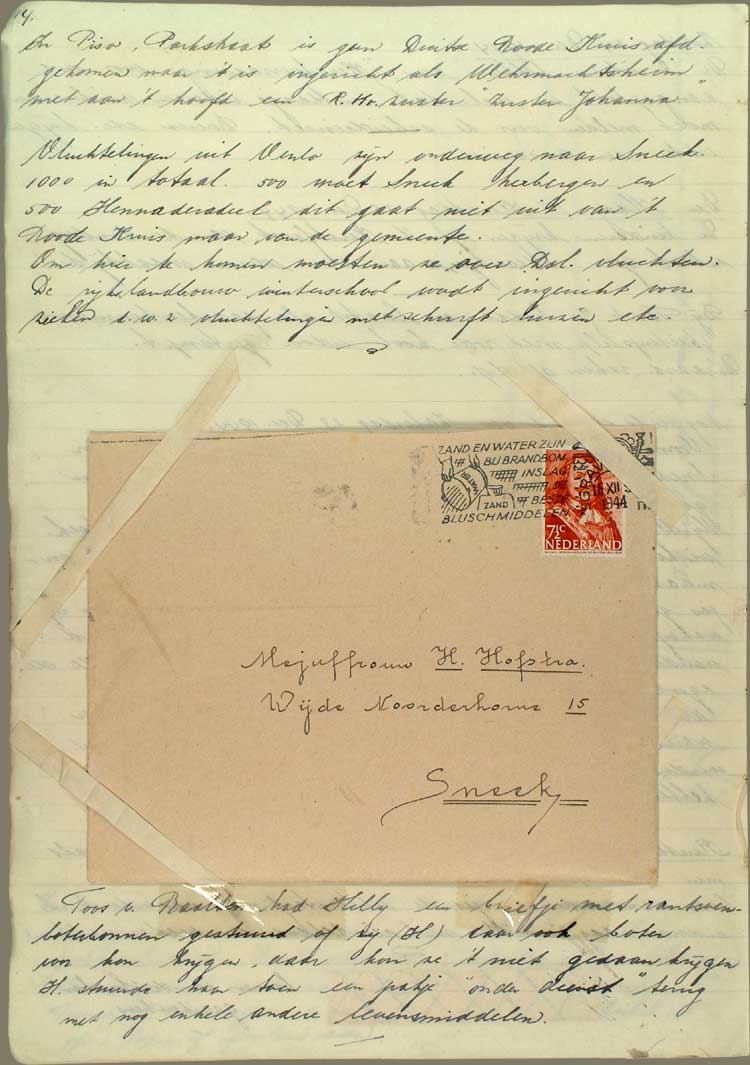 14.
In Piso, Parkstraat is geen Duits Roode Kruis afd.
gekomen maar 't is ingericht als Wehrmachtsheim
met aan 't hoofd een R. Kr. zuster "zuster Johanna"
Vluchtelingen uit Venlo zijn onderweg naar Sneek.
1000 in totaal. 500 moet Sneek herbergen en
500 Hennaderadeel dit gaat niet uit van 't
Roode Kruis maar van de gemeente.
Om hier te komen moesten ze over Dsl. vluchten.
De rijkslandbouw winterschool wordt ingericht voor
zieken d.w.z vluchtelingen met schurft luizen etc.
ZAND EN WATER ZIJN
BIJ BRANDBOM
INSLAG
DE
BESTE
BLUSCHMIDDELEN
WATER
ZAND
XII
1944
7½c
NEDERLAND
Mejuffrouw H. Hofstra.
Wijde Noorderhorne 15
Sneek
Toos v. had Hilly een briefje met rantsoen-
boterbonnen gestuurd of zij (H.) daar ook boter
voor kon krijgen, daar kon ze 't niet gedaan krijgen
H. stuurde haar toen een pakje "onder dienst" terug
met nog enkele andere levensmiddelen.